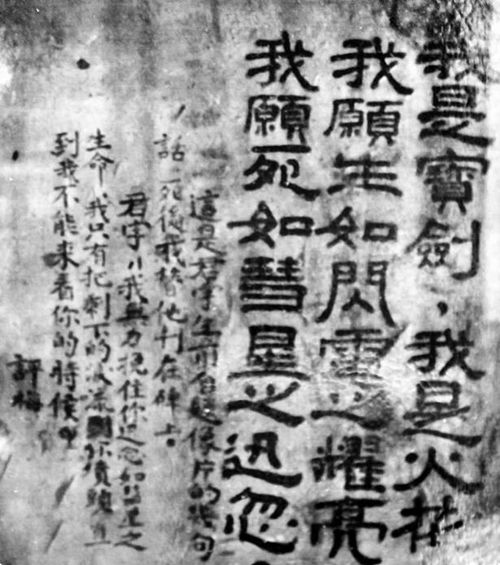 我是寶劍，我是火花
我願生如閃電之耀亮
我願死如彗星之迅忽
這是君宇生前自題像片的幾句
話，死後我替他刊在碑上。
君宇！我無力挽住你迅忽如彗星之
生命，我只有把剩下的淚流到你墳頭，直
到我不能來看你的時候
評梅